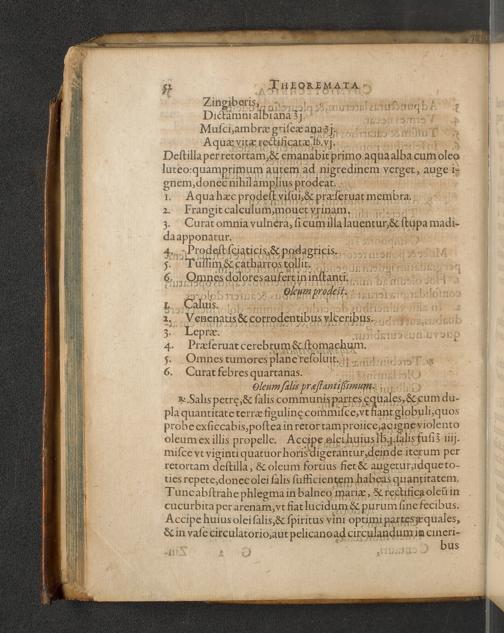 52 THEOREMATA
Zingiberis,
Dictamni albi ana ʒj.
Musci, ambræ griseæ ana ʒj.
Aquæ vitæ rectificatæ ℔.vj.
Destilla per retortam, & emanabit primo aqua alba cum oleo
luteo: quamprimum autem ad nigredinem verget, auge i-
gnem, donec nihil amplius prodeat.
1. Aqua hæc prodest visui, & præseruat membra.
2. Frangit calculum, mouet vrinam.
3. Curat omnia vulnera, si cum illa lauentur, & stupa madi-
da apponatur.
4. Prodest sciaticis, & podagricis.
5. Tussim & catharros tollit.
6. Omnes dolores aufert in instanti.
Oleum prodest.
1. Caluis.
2. Venenatis & corrodentibus vlceribus.
3. Lepræ.
4. Præseruat cerebrum & stomachum.
5. Omnes tumores plane resoluit.
6. Curat febres quartanas.
Oleum salis præstantissimum.
℞. Salis petrę, & salis communis partes equales, & cum du-
pla quantitate terræ figulinę commisce, vt fiant globuli, quos
probe exsiccabis, postea in retortam proiice, ac igne violento
oleum ex illis propelle. Accipe olei huius ℔.j. salis fusi ʒ iiij.
misce vt viginti quatuor horis digerantur, deinde iterum per
retortam destilla, & oleum fortius fiet & augetur, idque to-
ties repete, donec olei salis sufficientem habeas quantitatem.
Tunc abstrahe phlegma in balneo mariæ, & rectifica oleū in
cucurbita per arenam, vt fiat lucidum & purum sine fecibus.
Accipe huius olei salis, & spiritus vini optimi partes æquales,
& in vase circulatorio, aut pelicano ad circulandum in cineri-
bus